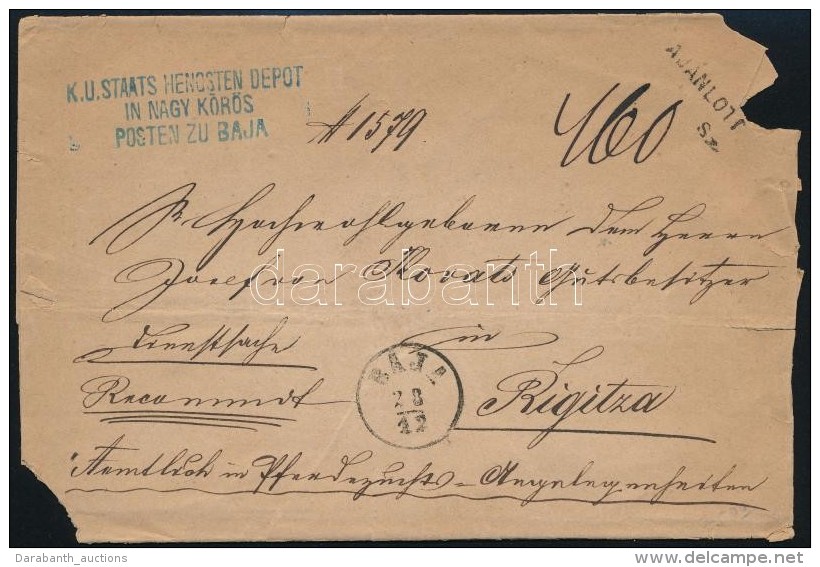 K.U. STAATS HENGSTEN DEPOT
IN NAGY KÖRÖS
POSTEN ZU BAJA
# 1579
460
AJÁNLOTT
Sr Hochwohlgeboren dem Herrn
Josef von Kovats Gutsbesitzer
Dienstsache
in
Recommdt
Rigitza
BAJA
28
12
Aemtlich in Pferdezuchts-Angelegenheiten
darabanth
Darabanth_auctions
http://www.delcampe.net